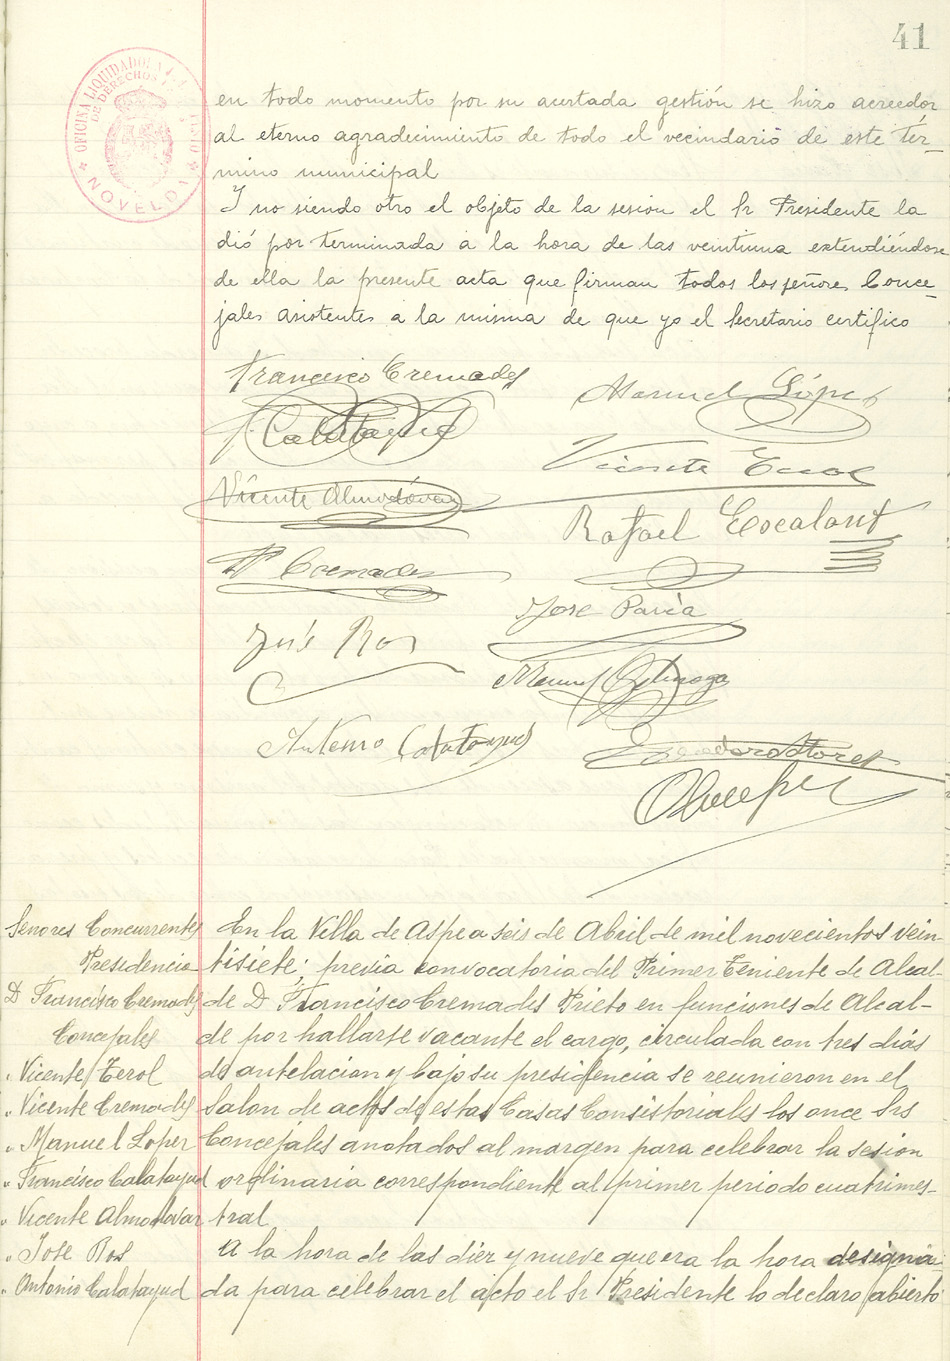 41
OFICINA LIQUIDADORA
DE DERECHOS
NOVELDA
en todo momento por su acertada gestión se hizo acreedor
al eterno agradecimiento de todo el vecindario de este tér-
mino municipal
Y no siendo otro el objeto de la sesion el Sr Presidente la
dió por terminada a la hora de las veintiuna extendiéndose
de ella la presente acta que firman todos los señores Conce-
jales asistentes a la misma de que yo el Secretario certifico
Francisco Cremades
Manuel López
Calatayud
Vicente
Vicente Almodóvar
Rafael Escalant
Cremades
Jose Pavia
José Ros
Manuel
Antonio Calatayud
Señores Concurrentes
Presidencia
D Francisco Cremades
Concejales
" Vicente Terol
" Vicente Cremades
" Manuel Lopez
" Francisco Calatayud
" Vicente Almodovar
" Jose Ros
" Antonio Calatayud
En la Villa de Aspe a seis de Abril de mil novecientos vein-
tisiete; previa convocatoria del Primer Teniente de Alcal-
de D Francisco Cremades Prieto en funciones de Alcal-
de por hallarse vacante el cargo, circulada con tres dias
de antelacion y bajo su presidencia se reunieron en el
Salon de actos de estas Casas Consistoriales los once Srs
Concejales anotados al margen para celebrar la sesion
ordinaria correspondiente al primer periodo cuatrimes-
tral
A la hora de las diez y nueve que era la hora designa-
da para celebrar el acto el Sr Presidente lo declaro abierto